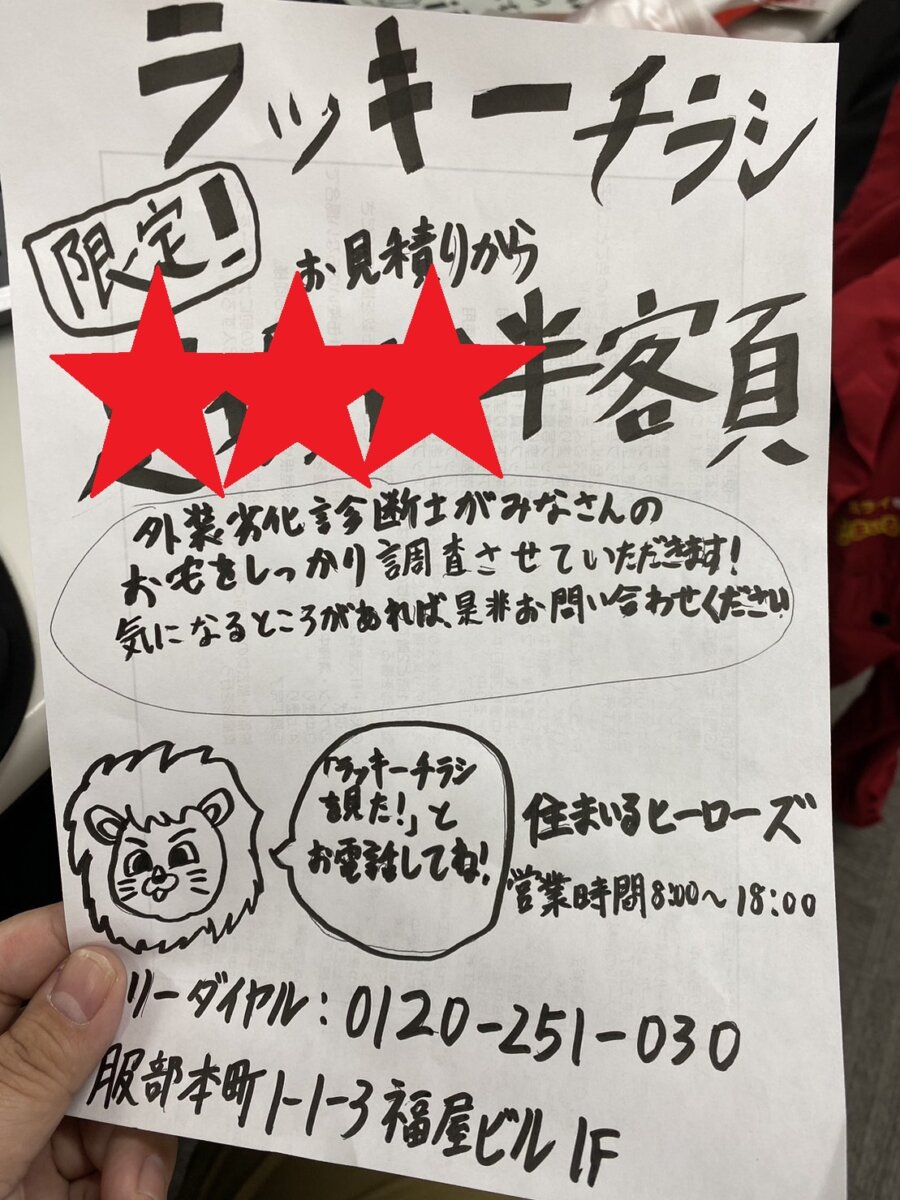 ラッキーチラシ
限定!
お見積りから
半客頁
外装劣化診断士がみなさんの
お宅をしっかり調査させていただきます!
気になるところがあれば、是非お問い合わせください
「ラッキーチラシ
を見た!」と
お電話してね!
住まいるヒーローズ
営業時間8:00〜18:00
リーダイヤル:0120-251-030
服部本町1-1-3福屋ビル1F